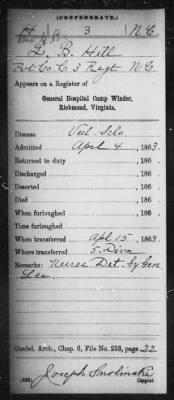 (CONFEDERATE.)
H 3 N.C.
L. B. Hill
Pvt Co C 3 Regt N.C.
Appears on a Register of
General Hospital Camp Winder,
Richmond, Virginia.
Disease Vul. Sclo.
Admitted April 4, 1863.
Returned to duty , 186 .
Discharged , 186 .
Deserted , 186 .
Died , 186 .
When furloughed , 186 .
Time furloughed
When transferred Apl 15, 1863.
Where transferred 5. Divn
Remarks: Nurse Det. by Gen
Lee.
Confed. Arch., Chap. 6, File No. 233, page 22
Joseph Smolinski
Copyist.